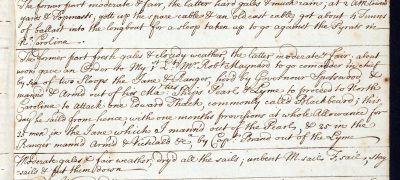 The former part moderate & fair, the latter hard gales & much rain; at 2 a
yards & Topmasts, gott up the spare cables & an old cast cable, got about 12 Tunns
of ballast into the longboat for a sloop taken up to go against the Pyrats in
No Carolina
The former part fresh gales & cloudy weather, the latter moderate & fair. about
noon gave an Order to my 1st Lt Mr Robt Maynard to go comander in cheif
by sea of two sloops the Jane & Ranger, hired by Governour Spotswood &
mannd & Armd out of his Mats ships Pearl & Lyme to proceed to North
Carolina to attack one Edward Thatch, commonly called Blackbeard; this
day he saild from hence, with one months provisions at whole Allowance for
35 men in the Jane which I mannd out of the Pearl, & 25 in the
Ranger mannd Armd & Victuald &ca by Capt Brand out of the Lyme
Moderate gales & fair weather, dryd all the sails, unbent M sail, F sail, & stay
sails & put them down